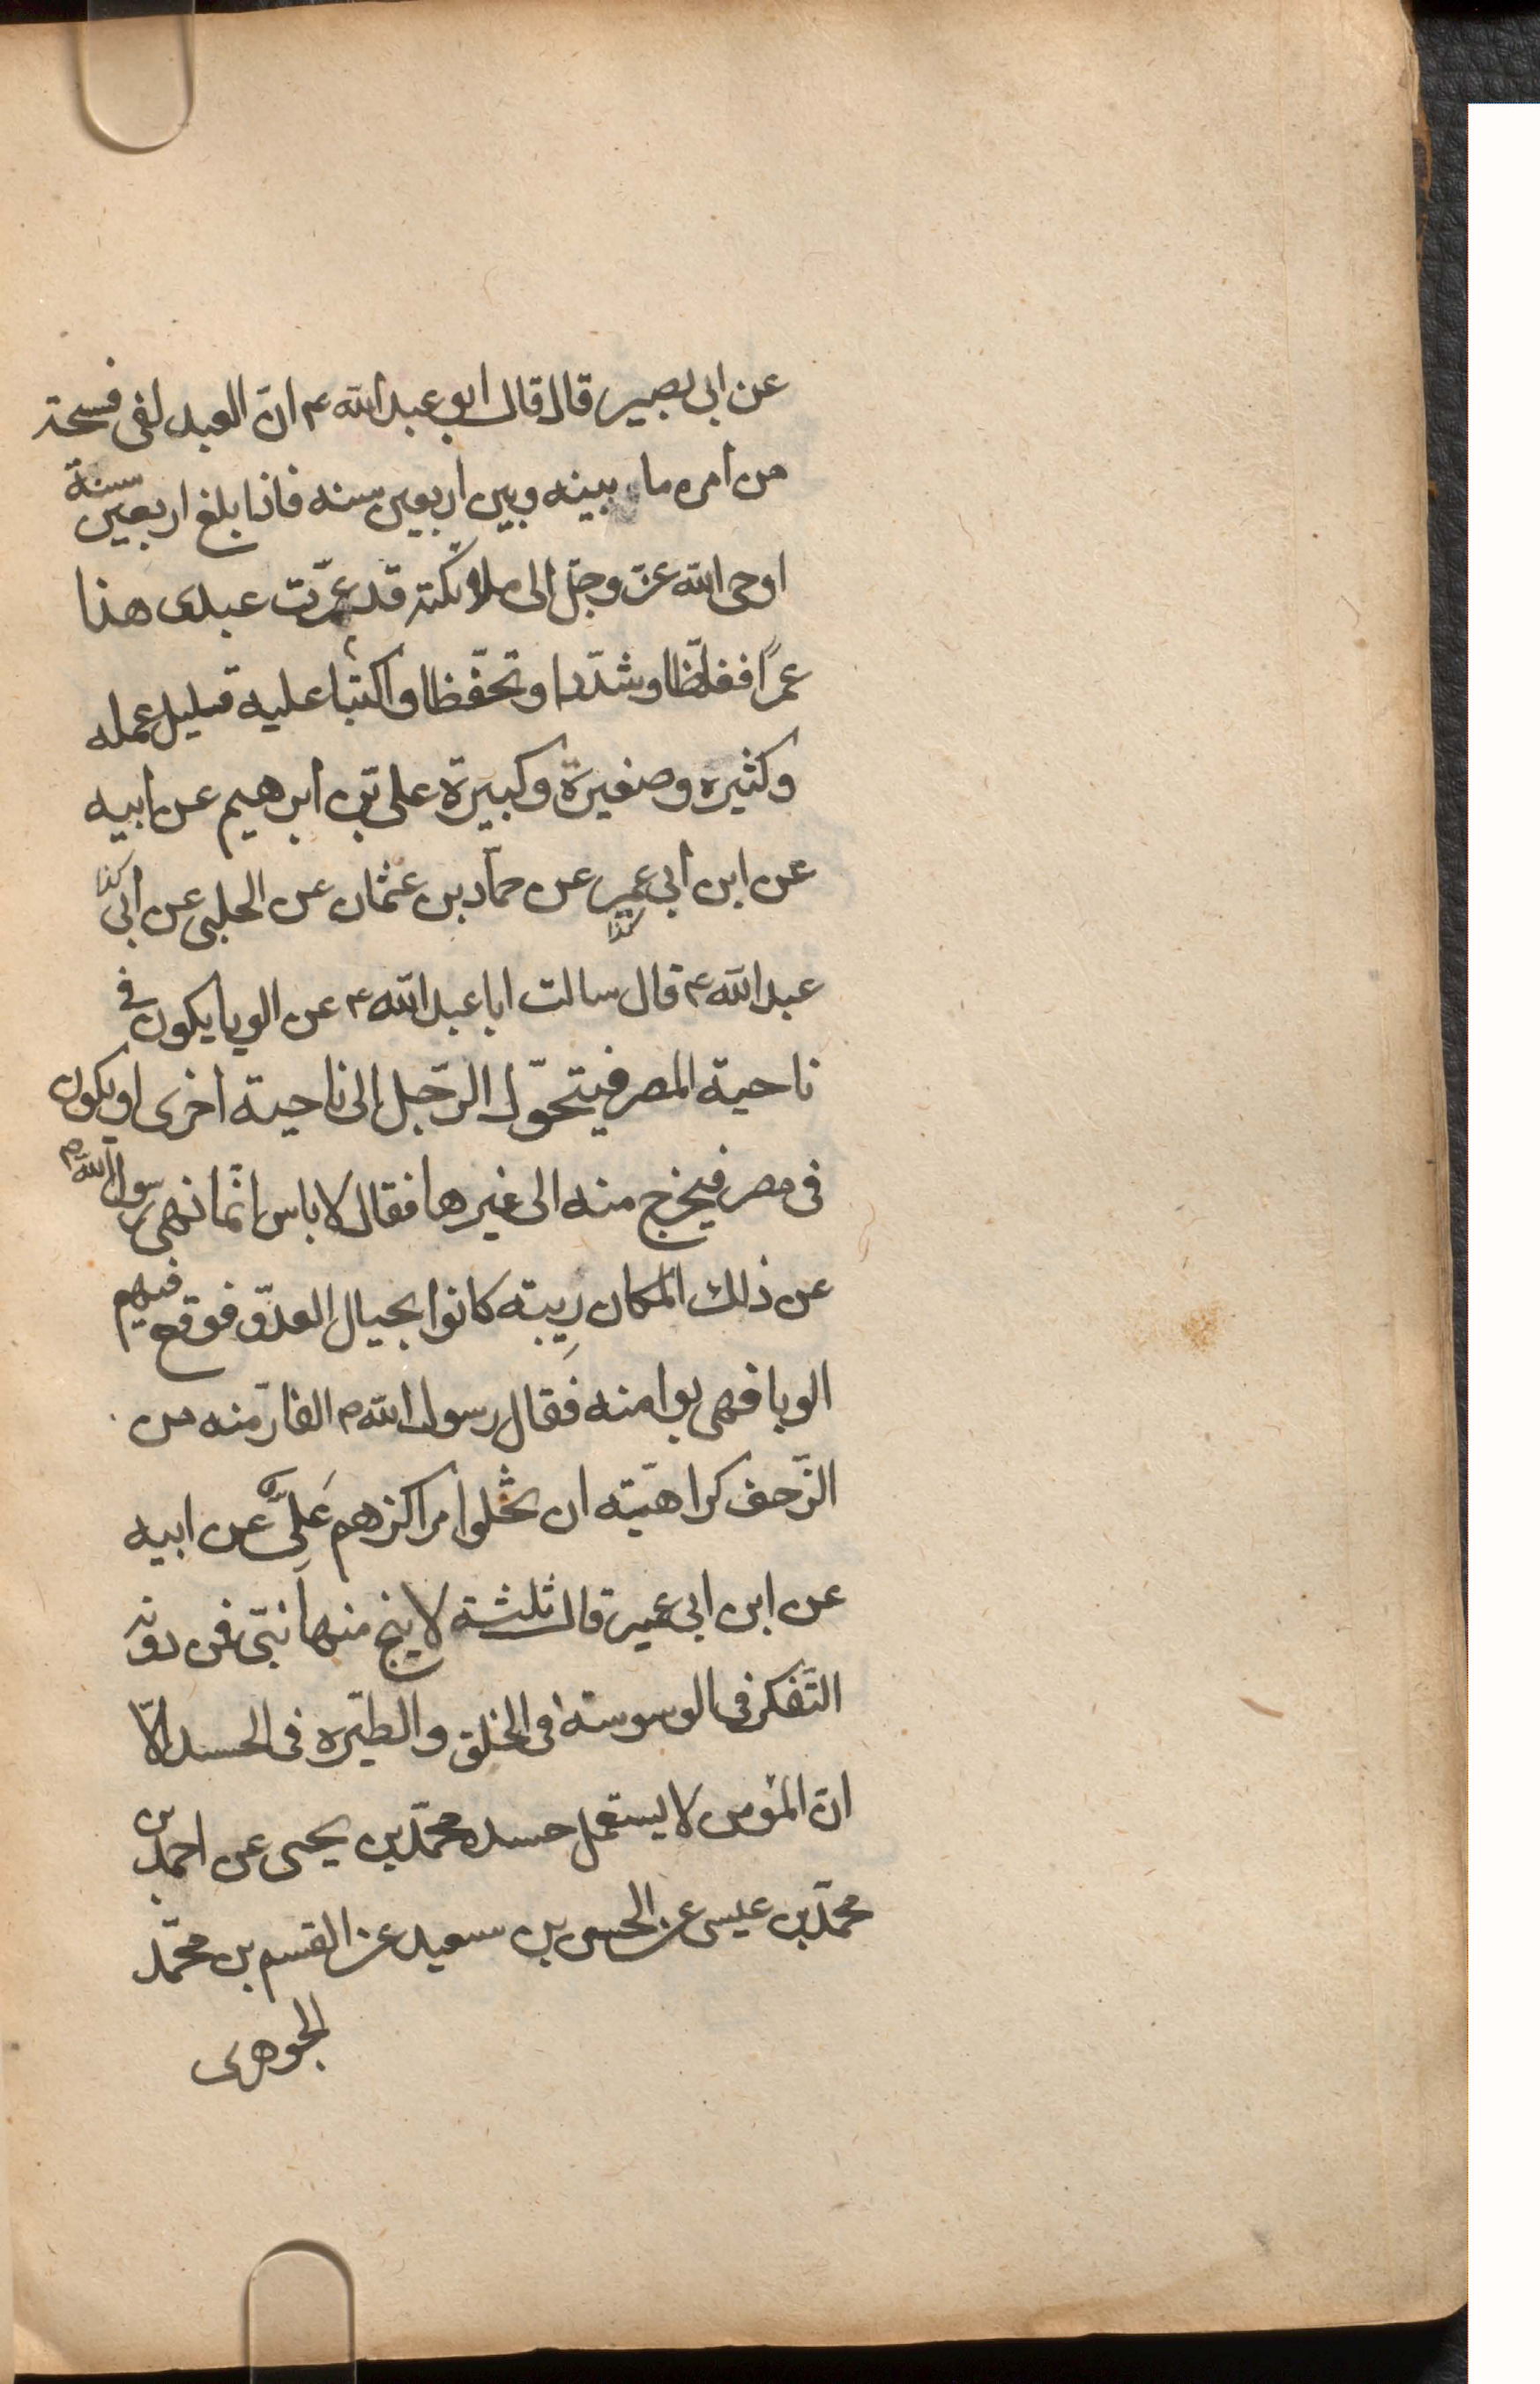 عن ابى بصير قال قال ابو عبدالله ع ان العبد لفى فسحة
من امره ما بينه وبين اربعين سنه فاذا بلغ اربعين سنة
اوحى الله عز وجل الى ملائكته قد عمّرت عبدى هذا
عمرًا فغلّظا وشدّدا وتحفّظا واكتبا عليه قليل عمله
وكثيره وصغيرة وكبيرة على بن ابرهيم عن ابيه
عن ابن ابى عمير عن حمّاد بن عثمان عن الحلبى عن ابى كذا
كذا
عبدالله ع قال سالت ابا عبدالله ع عن الوبا يكون فى
ناحية المصر فيتحوّل الرّجل الى ناحية اخرى او يكون
فى مصر فيخرج منه الى غيرها فقال لا باس انّما نهى رسول الله ص
عن ذلك المكان رِيبته كانوا بحيال العدوّ فوقع فيهم
الوبا فهربوا منه فقال رسول الله ص الفارّ منه من
الزّحف كراهيّته ان يخلوا مراكزهم عَلِىٌّ عن ابيه
عن ابن ابى عمير قال ثلثة لا ينج منها نبىّ فمن دونه
التّفكر فى الوسوسته فى الخلق والطيّره فى الحسد الّا
انّ المؤمن لا يستعمل حسده محمّد بن يحيى عن احمد بن
محمّد بن عيسى عن الحسين بن سعيد عن القسم بن محمّد
الجوهرى